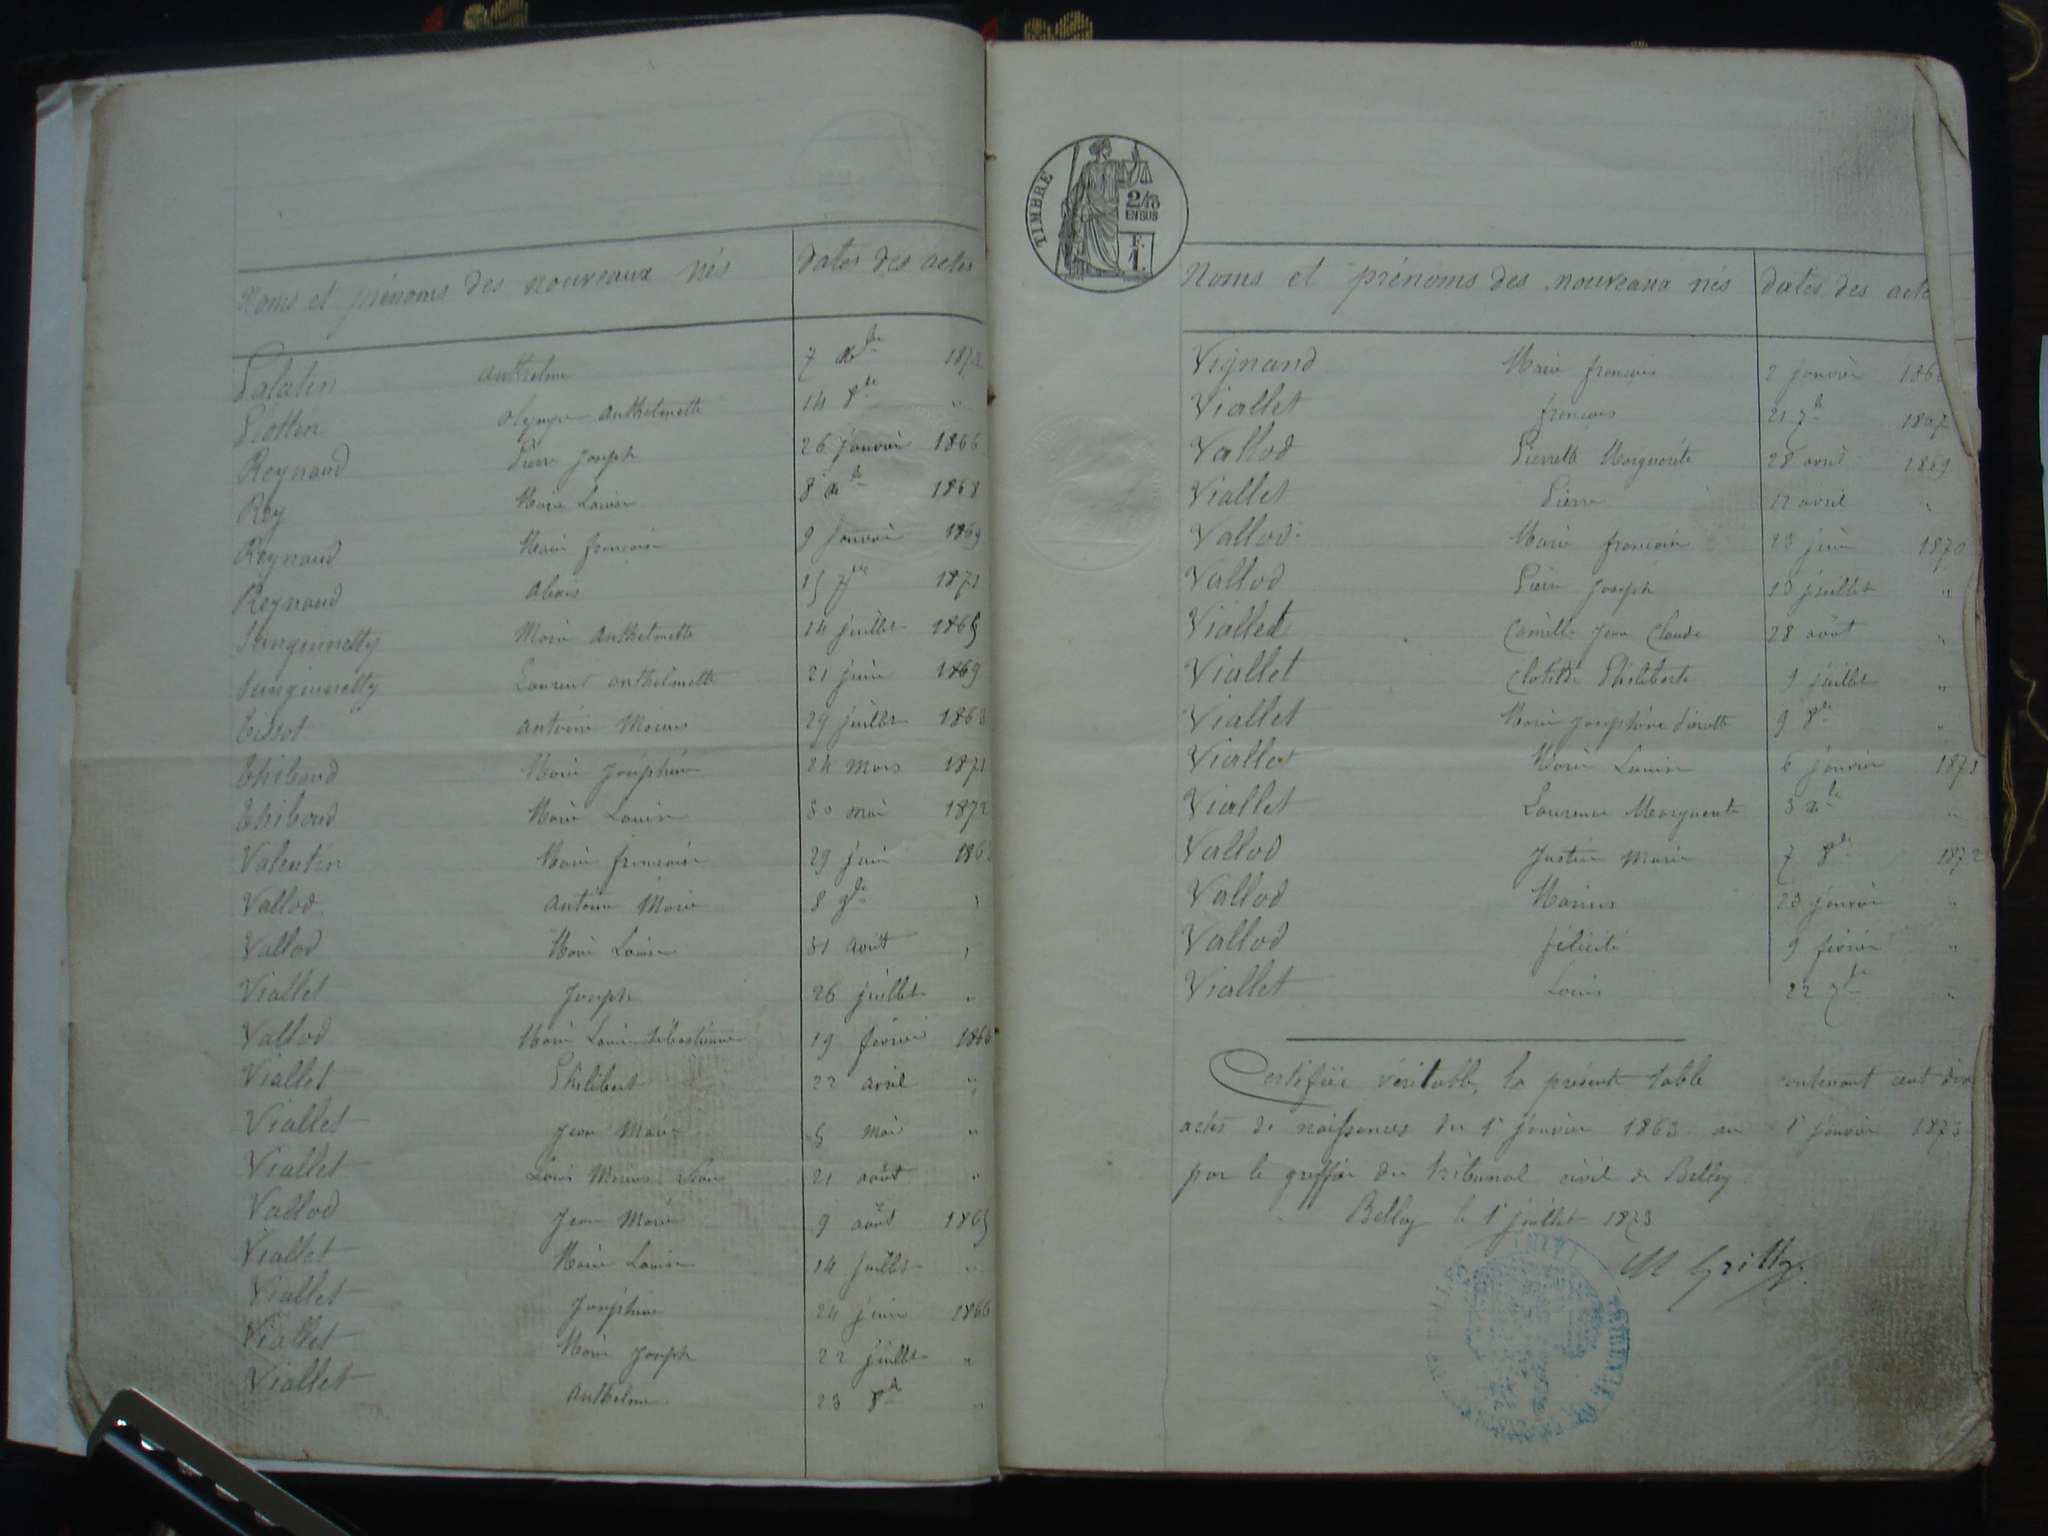 Noms et prénoms des nouveaux nés dates des actes
Palatin anthelme 7 Xbre 1872
Piottin olympe anthelmette 14 8bre "
Reynaud Pierre Joseph 26 janvier 1866
Rey Marie Louise 8 Xbre 1868
Reynaud Marie françoise 9 janvier 1869
Reynaud alexis 15 7bre 1871
Marie anthelmette 14 juillet 1865
Laurent anthelmette 21 juin 1869
Tissot antoine Marius 29 juillet 1863
Thibaud Marie Joséphine 24 Mars 1871
Thiboud Marie Louise 30 mai 1872
Valentin Marie françoise 29 juin
Vallod antoine Marie 8
Vallod Marie Louise 31 août "
Viallet Joseph 26 juillet "
Vallod Marie Louise Sébastienne 19 février
Viallet Philibert 22 avril "
Viallet Jean Marie 5 Mai "
Viallet Louis Marius 21 août "
Vallod Jean Marie 9 août 1865
Viallet Marie Louise 14 juillet "
Viallet Joséphine 24 juin 1866
Viallet Marie Joseph 22 juillet "
Viallet anthelme 23 8bre "
TIMBRE
2/10
EN SUS
F.
1.
Noms et prénoms des nouveaux nés dates des acte
Vignand Marie françois 2 janvier
Viallet françois 21 7b 1867
Vallod Pierrette Marguerite 28 avril 1869
Viallet Pierre 12 avril "
Vallod Marie françoise 23 juin 1870
Vallod Pierre Joseph 13 juillet "
Viallet Camille Jean Claude 28 août "
Viallet Clotilde Philiberte 9 juillet "
Viallet Marie Joséphine Pierrette 9 8bre "
Viallet Marie Louise 6 janvier 1871
Viallet Laurence Marguerite 3 Xbre "
Vallod Justin Marie 7 8bre 1872
Vallod Marius 23 janvier "
Vallod félicité 9 février "
Viallet Louis 22 "
Certifiée véritable, la présente table contenant cent dix
actes de naissances du 1r janvier 1863 au 1r janvier 1873
par le greffier du tribunal civil de Belley.
Belley le 1r juillet 1873